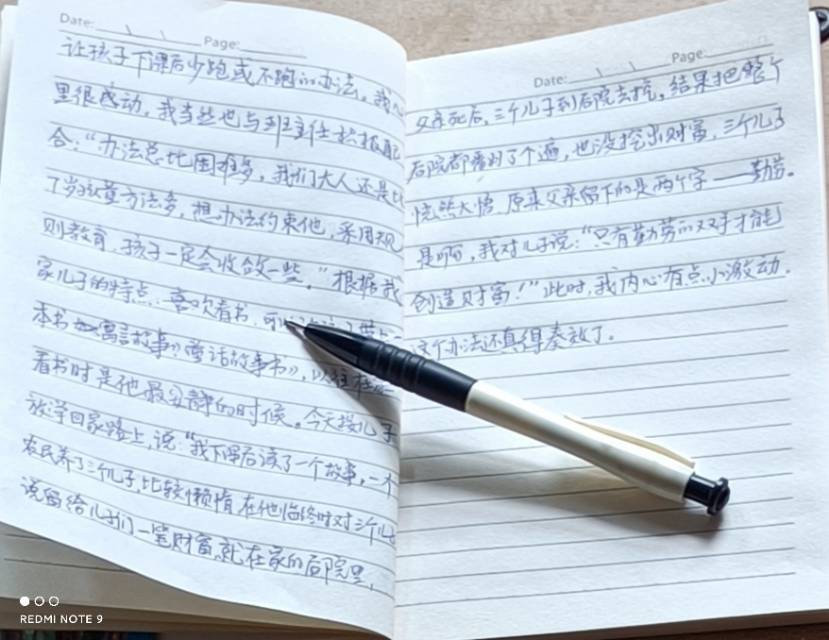 Date: Page:
让孩子下课后少跑或不跑的办法。我
里很感动。我当然也与班主任积极配
合："办法总比困难多，我们大人还是比
7岁孩童方法多，想办法约束他，采用规
则教育，孩子一定会收敛一些。"根据我
家儿子的特点，喜欢看书，可
本书《寓言故事》《童话故事书》，以往在
看书时是他最安静的时候。今天接儿子
放学回家路上，说："我下课后读了一个故事，一个
农民养了三个儿子，比较懒惰，在他临终时对三个儿
说留给儿子们一笔财富，就在家的后院里，
Date: Page:
父亲死后，三个儿子到后院去挖，结果把整个
后院都翻了个遍，也没挖出财富，三个儿子
恍然大悟，原来父亲留下的是两个字——勤劳。
是啊，我对儿子说："只有勤劳的双手才能
创造财富！"此时，我内心有点小激动，
这个办法还真得奏效了。
REDMI NOTE 9